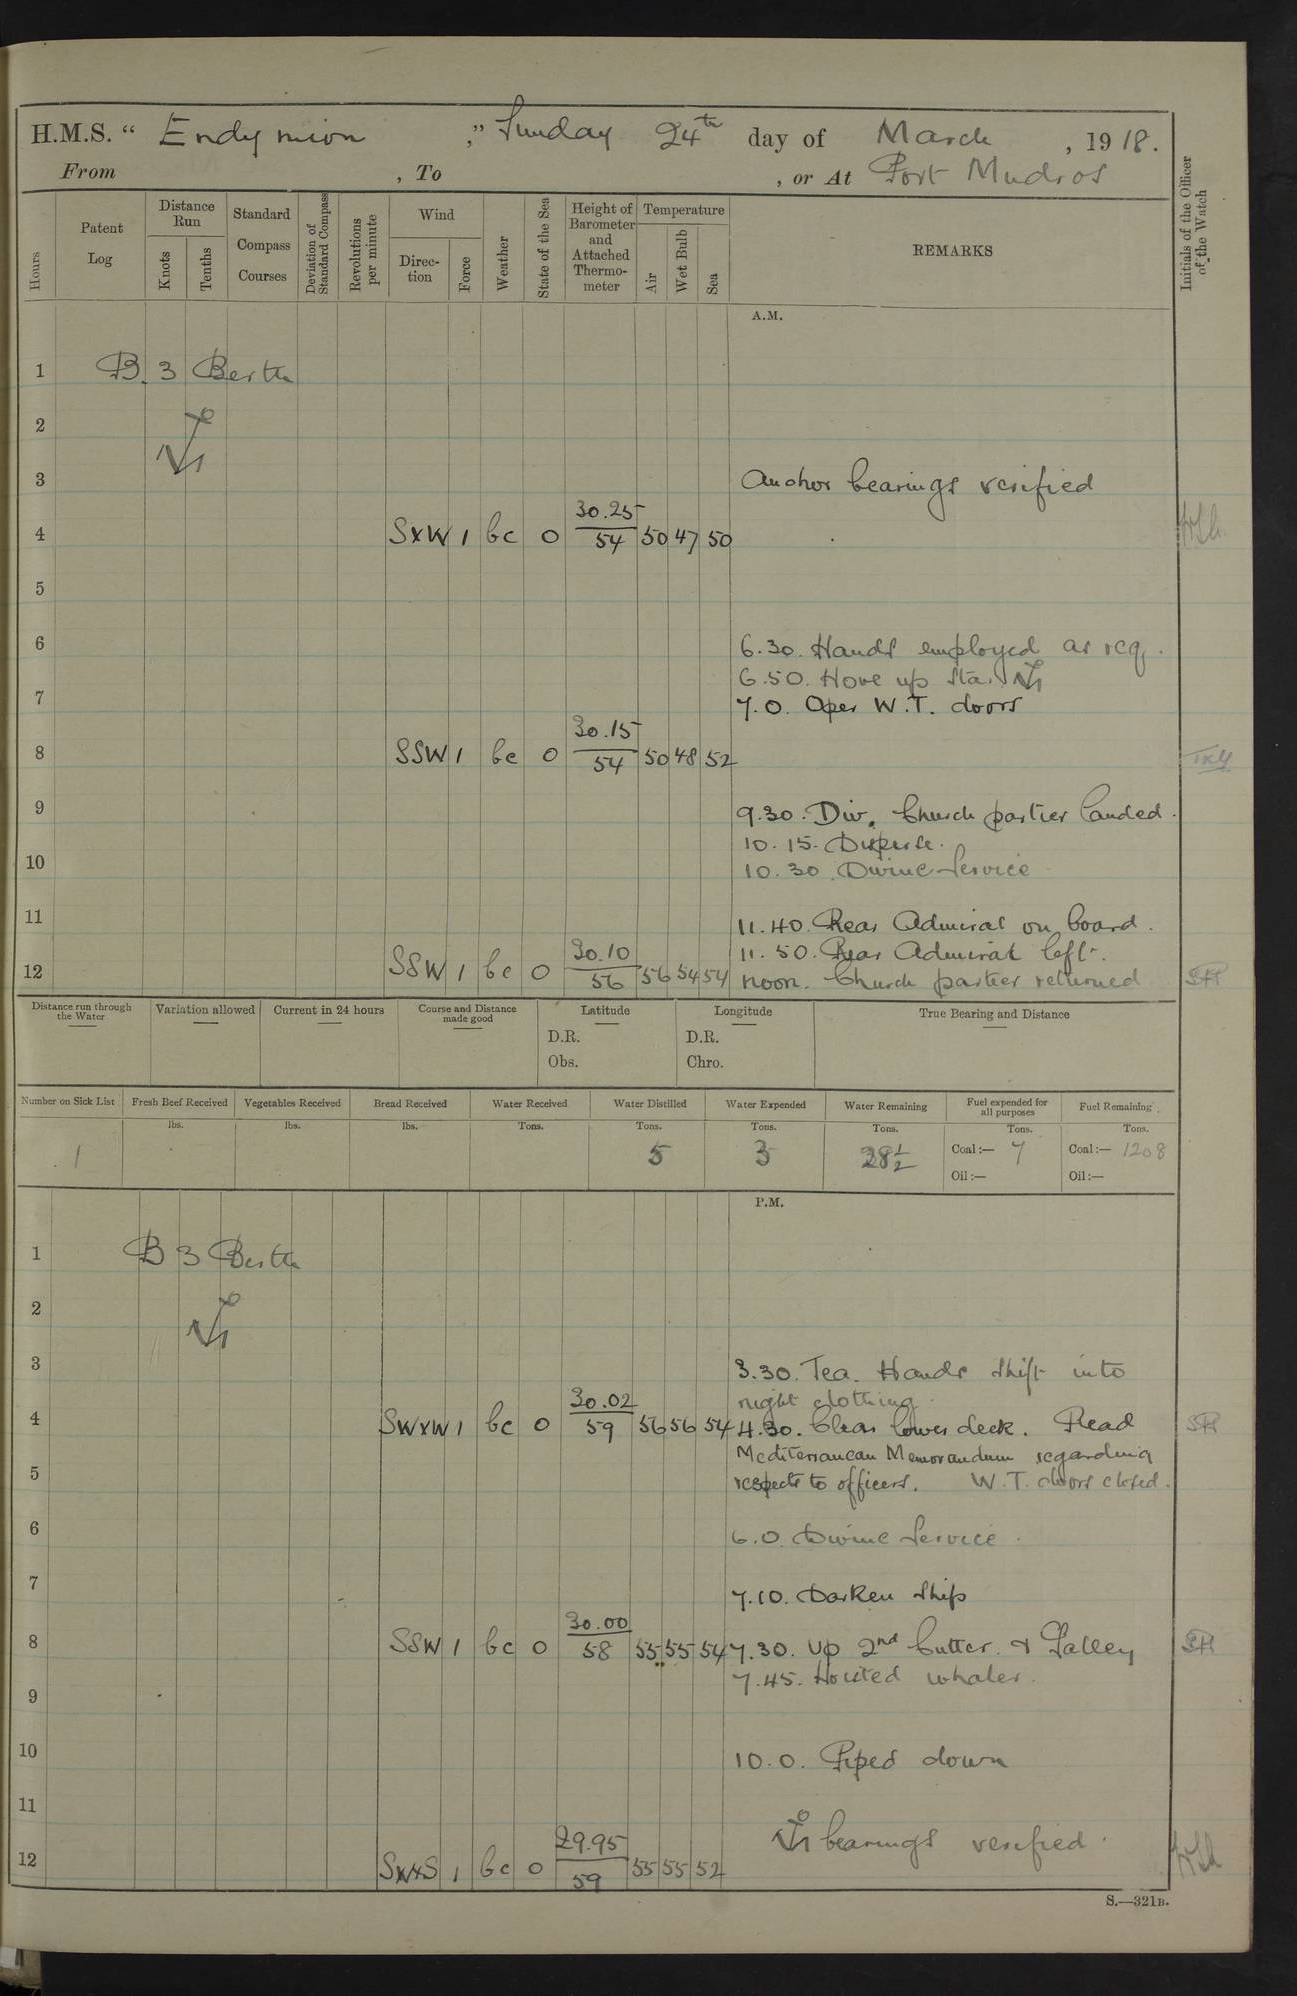 H.M.S. " Endymion ," Sunday 24th day of March , 1918.
From , To , or At Port Mudros
Hours Patent Log Distance Run Knots Tenths Standard Compass Courses Deviation of Standard Compass Revolutions per minute Wind Direc-tion Force Weather State of the Sea Height of Barometer and Attached Thermo-meter Temperature Air Wet Bulb Sea REMARKS Initials of the Officer of the Watch
A.M.
1 B. 3 Berth
2
3 Anchor bearings verified
4 SxW 1 bc 0 30.25 54 50 47 50
5
6 6.30. Hands employed as req.
6.50. Hove up sta.
7 7.0. Open W.T. doors
8 SSW 1 bc 0 30.15 54 50 48 52
9 9.30. Div. Church parties landed.
10.15. Disperse.
10 10.30. Divine Service
11 11.40. Rear Admiral on board.
11.50. Rear Admiral left.
12 SSW 1 bc 0 30.10 56 56 54 54 noon. Church parties returned SH
Distance run through the Water Variation allowed Current in 24 hours Course and Distance made good Latitude Longitude True Bearing and Distance
D.R. D.R.
Obs. Chro.
Number on Sick List Fresh Beef Received Vegetables Received Bread Received Water Received Water Distilled Water Expended Water Remaining Fuel expended for all purposes Fuel Remaining
lbs. lbs. lbs. Tons. Tons. Tons. Tons. Tons. Tons.
1 5 3 28½ Coal:— 7 Coal:— 1208
Oil:— Oil:—
P.M.
1 B 3 Berth
2
3 3.30. Tea. Hands shift into
night clothing.
4 SWxW 1 bc 0 30.02 59 56 56 54 4.30. Clear lower deck. Read SH
Mediterranean Memorandum regarding
5 respects to officers. W.T. doors closed.
6 6.0. Divine Service.
7 7.10. Darken Ship
8 SSW 1 bc 0 30.00 58 55 55 54 7.30. Up 2nd Cutter. & Galley SH
7.45. Hoisted whaler.
9
10 10.0. Piped down
11
bearings verified.
12 SWxS 1 bc 0 29.95 59 55 55 52
S.—321B.